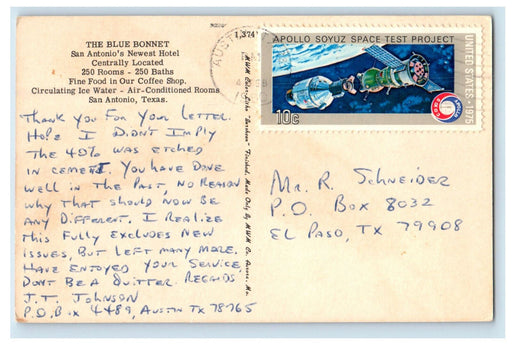 THE BLUE BONNET
San Antonio's Newest Hotel
Centrally Located
250 Rooms - 250 Baths
Fine Food in Our Coffee Shop.
Circulating Ice Water - Air-Conditioned Rooms
San Antonio, Texas.
THANK YOU FOR YOUR LETTER.
HOPE I DIDN'T IMPLY
THE 40% WAS ETCHED
IN CEMENT. YOU HAVE DONE
WELL IN THE PAST, NO REASON
WHY THAT SHOULD NOW BE
ANY DIFFERENT. I REALIZE
THIS FULLY EXCLUDES NEW
ISSUES, BUT LEFT MANY MORE.
HAVE ENJOYED YOUR SERVICE,
DONT BE A QUITTER. REGARDS
J.T. JOHNSON
P.O. BOX 4489, AUSTIN TX 78765
1,374
MWM Color-Litho "Lusterem" Finished, Made Only By MWM Co., Aurora, Mo.
AUST
APOLLO SOYUZ SPACE TEST PROJECT
UNITED STATES • 1975
10c
MR. R. SCHNEIDER
P.O. BOX 8032
EL PASO, TX 79908